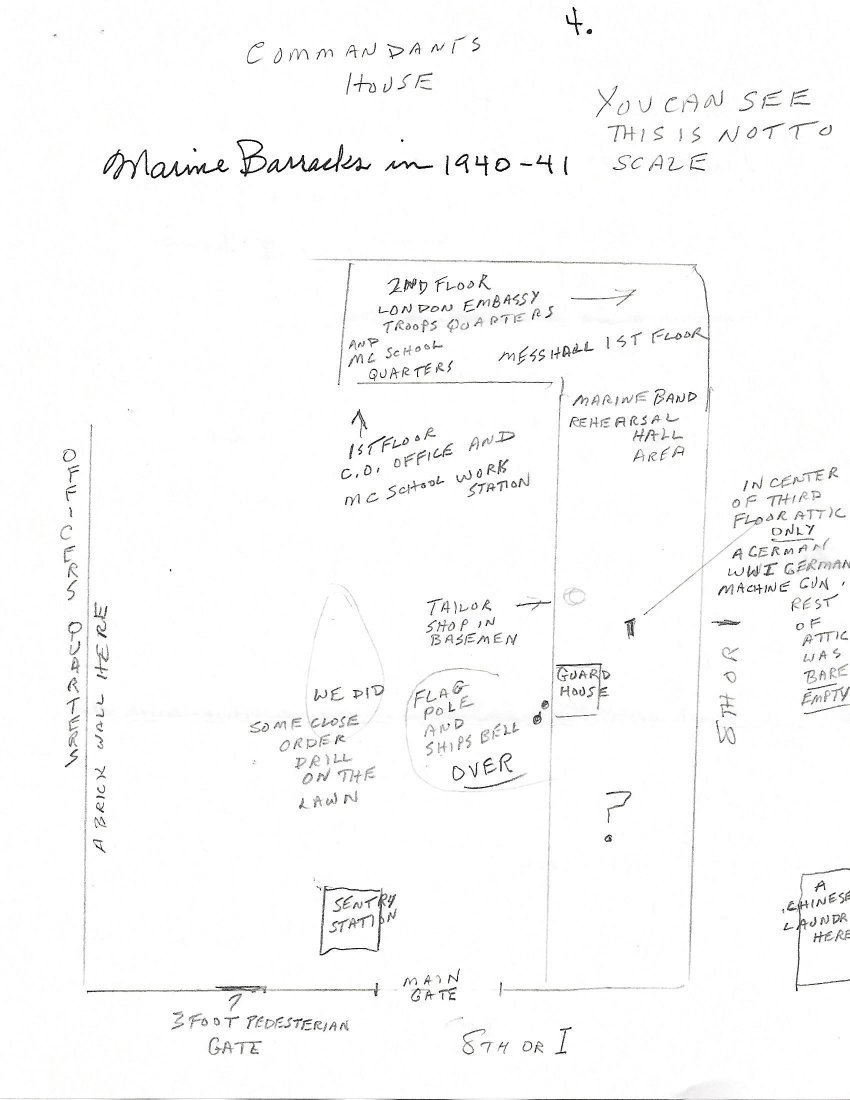 4.
COMMANDANTS
HOUSE
YOU CAN SEE
THIS IS NOT TO
SCALE
Marine Barracks in 1940-41
2ND FLOOR
LONDON EMBASSY
TROOPS QUARTERS
AND
MC SCHOOL
QUARTERS
MESSHALL 1ST FLOOR
MARINE BAND
REHEARSAL
HALL
AREA
1ST FLOOR
C.O. OFFICE AND
MC SCHOOL WORK
STATION
OFFICERS QUARTERS
A BRICK WALL HERE
IN CENTER
OF THIRD
FLOOR ATTIC
ONLY
A GERMAN
WWI GERMAN
MACHINE GUN.
REST
OF
ATTIC
WAS
BARE
EMPTY
TAILOR
SHOP IN
BASEMEN
GUARD
HOUSE
8TH OR I
WE DID
SOME CLOSE
ORDER
DRILL
ON THE
LAWN
FLAG
POLE
AND
SHIPS BELL
OVER
?
SENTRY
STATION
A
CHINESE
LAUNDR
HERE
MAIN
GATE
3 FOOT PEDESTERIAN
GATE
8TH OR I